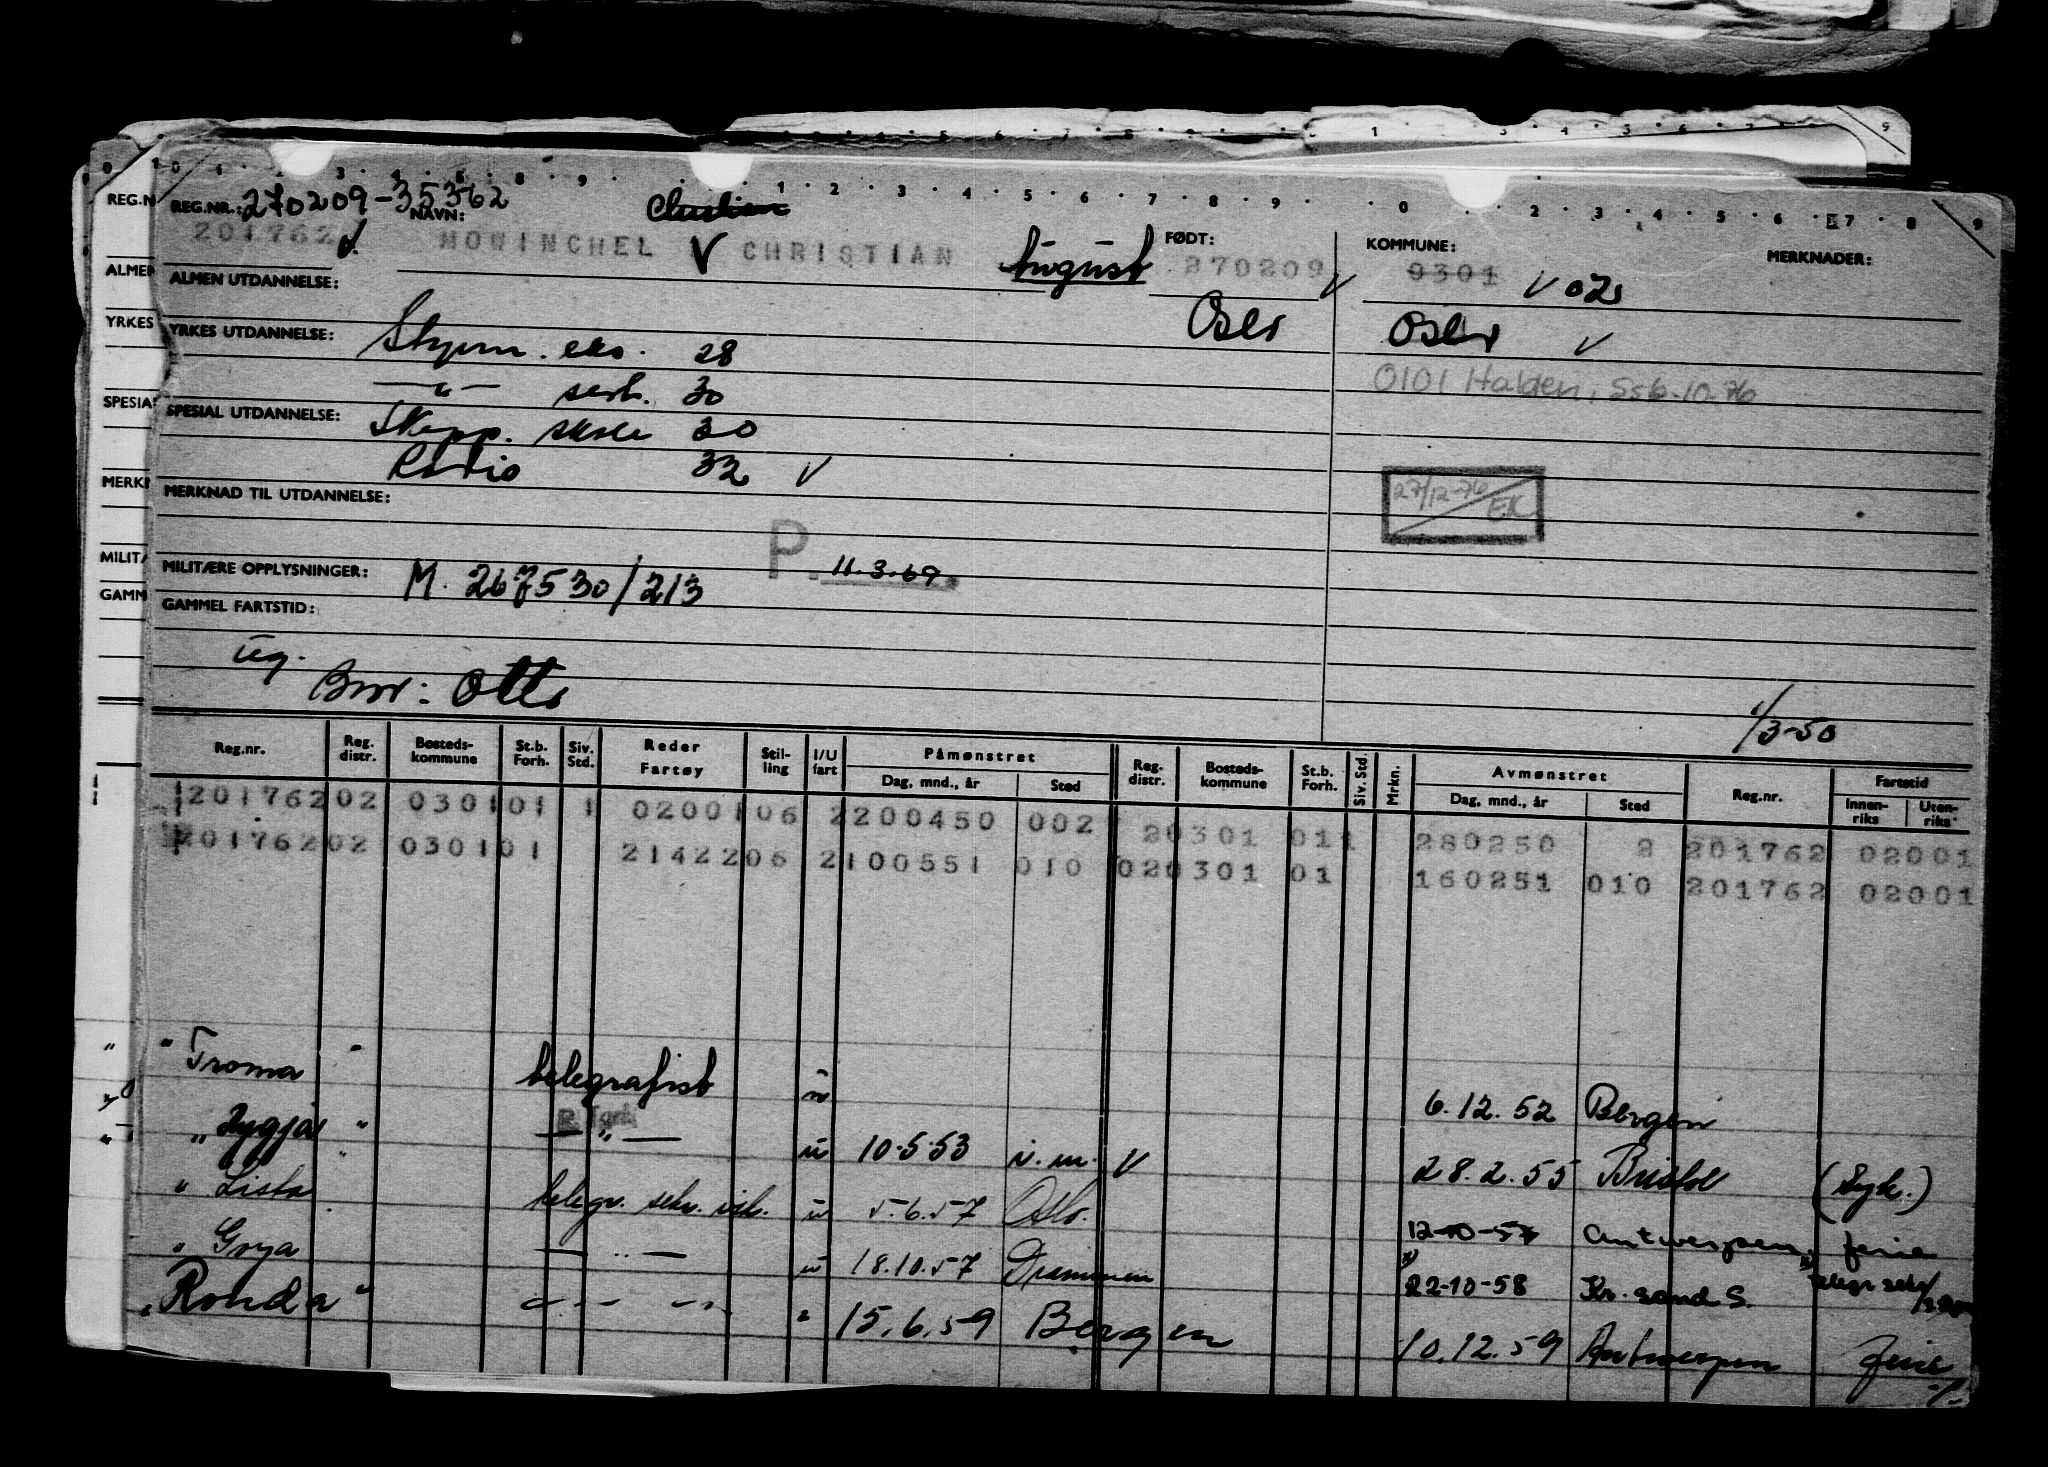 REG.NR.: 270209-35362
NAVN:
201762 MOWINCHEL V CHRISTIAN August
FØDT: 270209 V
KOMMUNE: 0301 V 02
MERKNADER:
ALMEN UTDANNELSE:
Oslo Oslo V
YRKES UTDANNELSE: Styrm. eks. 28
0101 Halden, 556-10.76
—"— sert. 30
SPESIAL UTDANNELSE: Skipp. skole 30
Radio 32 V
MERKNAD TIL UTDANNELSE:
27/12-76 E.K
P. 11.3.69.
MILITÆRE OPPLYSNINGER: M. 267530/213
GAMMEL FARTSTID:
ug.
Bror: Otto
1/3-50
Reg.nr. Reg. distr. Bosteds-kommune St.b. Forh. Siv. Std. Reder Fartøy Stil-ling I/U fart Påmønstret Dag, mnd., år Sted Reg. distr. Bosteds-kommune St.b. Forh. Siv. Std. Mrkn. Avmønstret Dag, mnd., år Sted Reg.nr. Fartstid Innen-riks Uten-riks
201762 02 0301 01 1 02001 06 2 200450 002 20301 011 280250 2 201762 02001
201762 02 0301 01 21422 06 2 100551 010 020301 01 160251 010 201762 02001
" Troma " telegrafist u 6.12.52 Bergen
" Rygja " —"— u 10.5.53 i.m. V 28.2.55 Bristol (Syk.)
" Lista " telegr. sekr. u 5.6.57 Oslo. 12-10-57 Antwerpen, ferie
" Goya —"— u 18.10.57 Drammen 22-10-58 Kr.sand S.
" Ronda " —"— " 15.6.59 Bergen 10.12.59 Antwerpen ferie